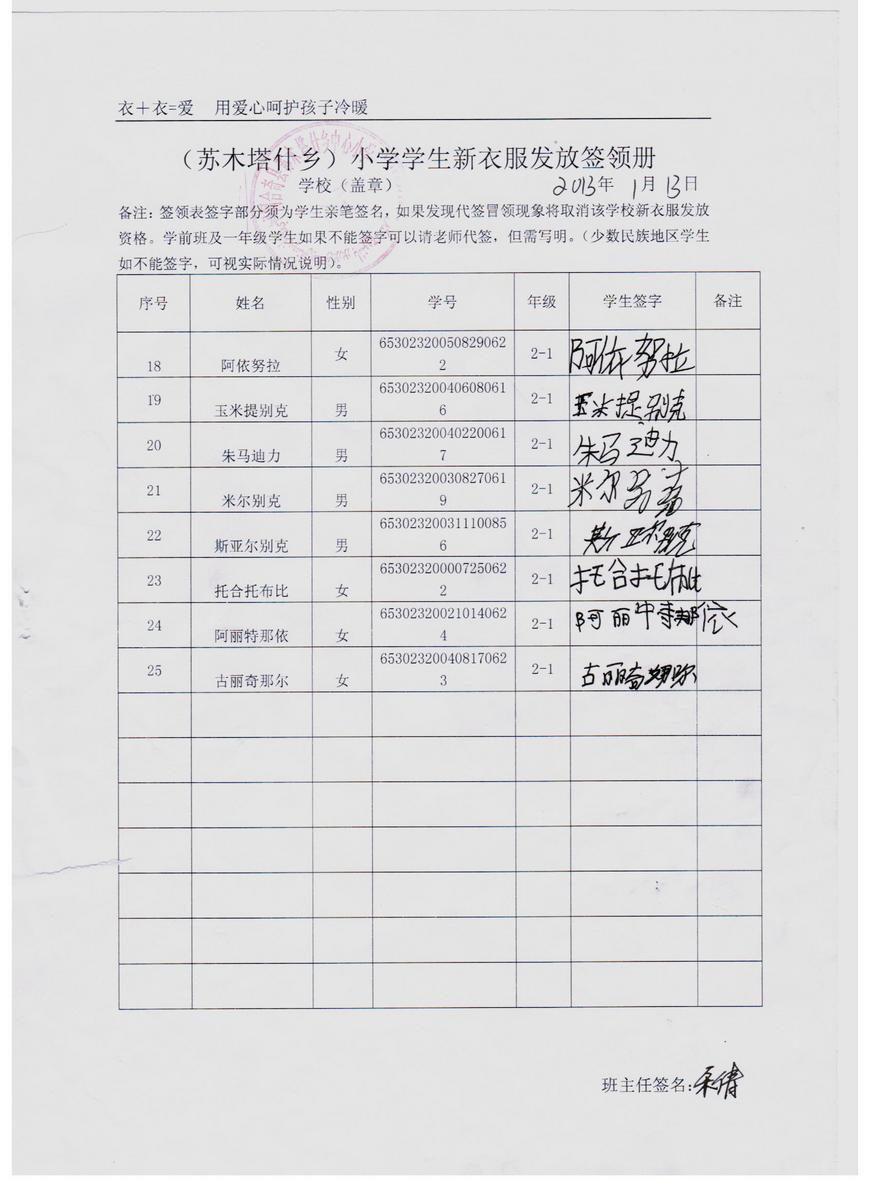 衣＋衣=爱 用爱心呵护孩子冷暖
（苏木塔什乡）小学学生新衣服发放签领册
学校（盖章） 2013年 1月 13日
备注：签领表签字部分须为学生亲笔签名，如果发现代签冒领现象将取消该学校新衣服发放
资格。学前班及一年级学生如果不能签字可以请老师代签，但需写明。（少数民族地区学生
如不能签字，可视实际情况说明）。
序号 姓名 性别 学号 年级 学生签字 备注
18 阿依努拉 女 653023200508290622 2-1 阿依努拉
19 玉米提别克 男 653023200406080616 2-1 玉米提别克
20 朱马迪力 男 653023200402200617 2-1 朱马迪力
21 米尔别克 男 653023200308270619 2-1 米尔别克
22 斯亚尔别克 男 653023200311100856 2-1 斯亚尔别克
23 托合托布比 女 653023200007250622 2-1 托合托布比
24 阿丽特那依 女 653023200210140624 2-1 阿丽特那依
25 古丽奇那尔 女 653023200408170623 2-1 古丽奇那尔
班主任签名: